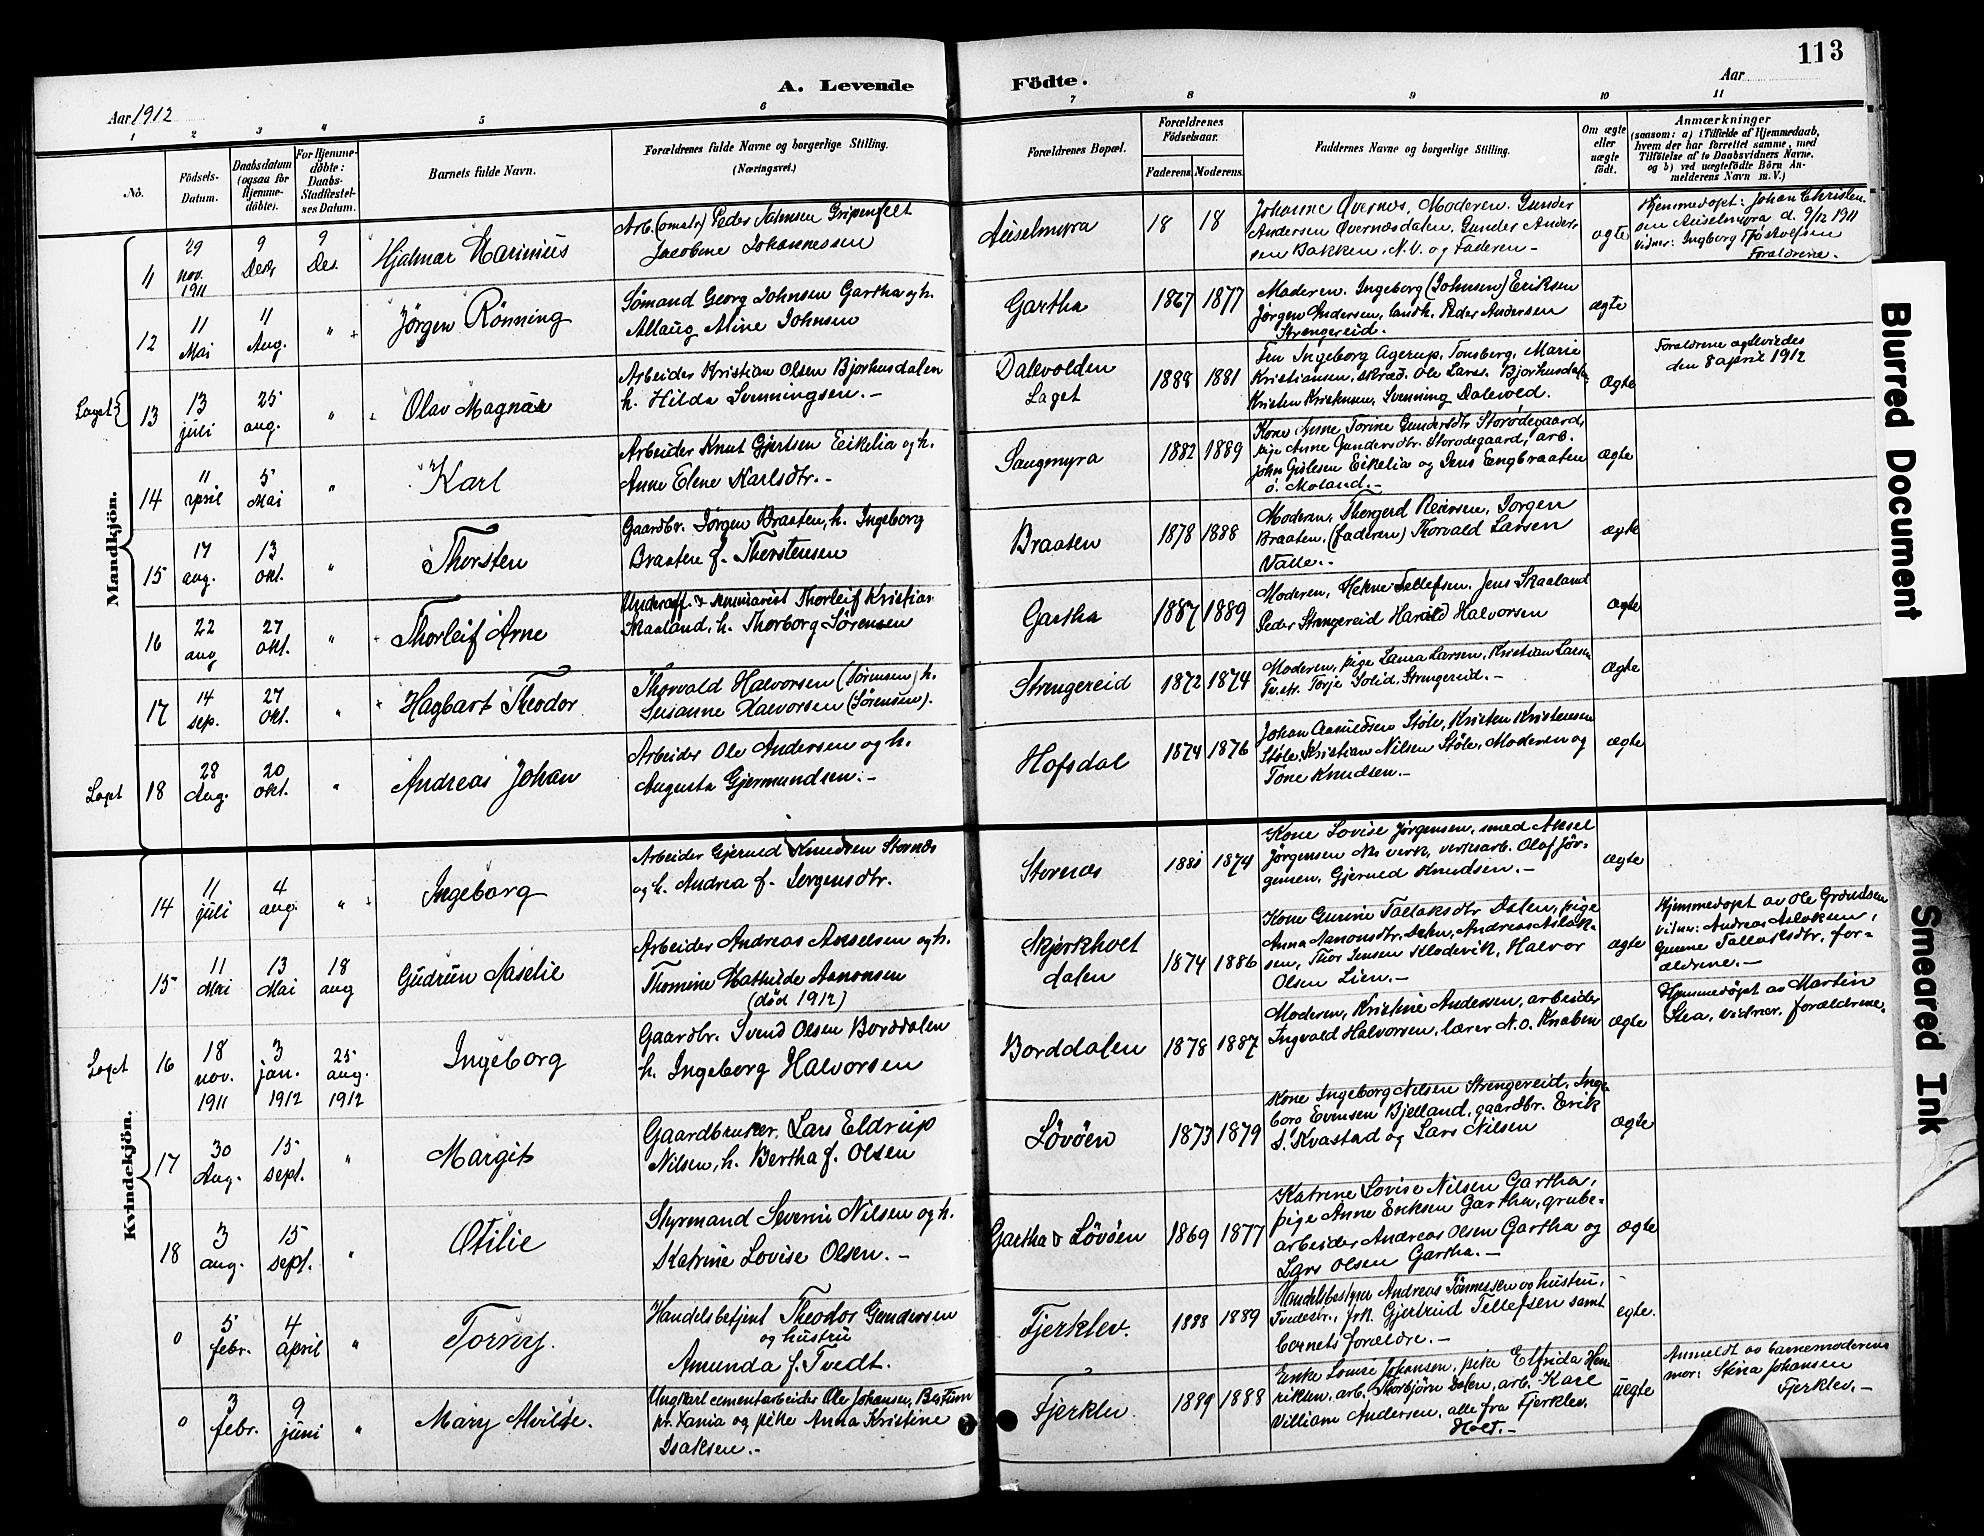 113
A. Levende
Födte.
Aar 1912
Aar
1
2
3
4
5
6
7
8
9
10
11
No.
Födsels-
Datum.
Daabsdatum
(ogsaa for
Hjemme-
döbte).
For Hjemme-
döbte:
Daabs-
Stadfæstel-
ses Datum.
Barnets fulde Navn.
Forældrenes fulde Navne og borgerlige Stilling.
(Næringsvei.)
Forældrenes Bopæl.
Forældrenes
Födselsaar.
Faderens.
Moderens.
Faddernes Navne og borgerlige Stilling.
Om ægte
eller
uægte
födt.
Anmærkninger
(saasom: a) i Tilfælde af Hjemmedaab,
hvem der har forrettet samme, med
Tilföielse af to Daabsvidners Navne.
og b) ved uægtefödte Börn An-
melderens Navn m. V.)
Mandkjön.
11
29
nov.
1911
9
Des.
9
Des.
Hjalmar Marinius
Arb. Peder Gripenfelt
Jacobine Johannessen
Auselmyra
18
18
Johanne Øvernes, Moderen, Gunder
Andersen Øvernesdalen, Gunder Ander-
sen Bakken, N.V. og Faderen -
ægte
Hjemmedøpt: Johan Christen-
sen Auselmyra d. 9/12 1911
Vidner: Ingborg
Forældrene.
12
11
Mai
11
Aug.
"
Jørgen Rønning
Sømand Georg Johnsen Gartha og h.
Allaug Aline Johnsen
Gartha
1867
1877
Moderen. Ingeborg (Johnsen) Eriksen
Jørgen Andersen, landh. Peder Andersen
Strengereid.
ægte
Laget
13
13
juli
25
aug.
"
Olav Magnus
Arbeider Kristian Olsen Bjorhusdalen
h. Hilda Svenningsen. -
Dalevolden
Laget
1888
1881
Fru Ingeborg Agerup, Tønsberg, Marie
Kristiansen, skræd. Ole Lars. Bjorhusdalen
Kristen Kristensen, Svenning Dalevold.
ægte
Forældrene ægteviedes
den 8 april 1912
14
11
april
5
Mai
"
Karl
Arbeider Knut Gjertsen Eikelia og h.
Anne Elene Karlsdtr. -
Saugmyra
1882
1889
Kone Anne Torine Gundersdtr Storødegaard,
pige Anne Gundersdtr. Storødegaard, arb.
John Gislesen Eikelia og Jens Engbraaten
ø. Moland. -
ægte
15
17
aug.
13
okt.
"
Thorsten
Gaardbr. Jørgen Braaten, h. Ingeborg
Braaten f. Thorstensen
Braaten
1878
1888
Moderen, Thorgerd Reiersen, Jørgen
Braaten, (faderen) Thorvald Larsen
Valle. -
ægte
16
22
aug
27
okt.
"
Thorleif Arne
Underoff. & Thorleif Kristian
Skaaland, h. Thorborg Sørensen
Gartha
1887
1889
Moderen, Helene Tellefsen, Jens Skaaland
Peder Strengereid Harald Halvorsen
ægte
17
14
sep.
27
okt.
"
Hagbart Theodor
Thorvald Halvorsen (Sørensen) h.
Susanne Halvorsen (Sørensen).
Strengereid
1872
1874
Moderen, pige Laura Larsen, Kristian Larsen
Tvestr. Torje Solid, Strengereid. -
ægte
Laget
18
28
Aug.
20
okt.
"
Andreas Johan
Arbeider Ole Andersen og h.
Augusta Gjermundsen. -
Hofsdal
1874
1876
Johan Aasmldsen Støle, Kristen Kristensen
Støle, Kristian Nilsen Støle, Moderen og
Tone Knudsen. -
ægte
Kvindekjön.
14
11
juli
4
aug.
"
Ingeborg
Arbeider Gjerued Knudsen Stornæs
og h. Andrea f. Jorgensdtr.
Stornæs
1881
1874
Kone Lovise Jørgensen, smed Aksel
Jørgensen Næs verk, verksarb. Olaf Jør-
gensen, Gjerued Knudsen. -
ægte
15
11
Mai
13
Mai
18
aug
Gudrun Aaselie
Arbeider Andreas Anselsen og h.
Thomine Mathilde Aanonsen
(død 1912)
Skjerkholt
dalen
1874
1886
Kone Gurine Tallaksdtr Dalen, pige
Anna Aanonsdtr. Dalen, Andreas Aslak-
sen, Thor Jensen Klodevik, Halvor
Olsen Lien. -
ægte
Hjemmedøpt av Ole Grundsen
vidner: Andreas Aslaksen,
Gurine Tallaksdtr, for-
ældrene. -
Laget
16
18
nov.
1911
3
jan.
1912
25
aug.
1912
Ingeborg
Gaardbr. Svend Olsen Borddalen
h. Ingeborg Halvorsen
Borddalen
1878
1887
Moderen, Kristine Andersen, arbeider
Ingvald Halvorsen, lærer N.O. Knaben
ægte
Hjemmedøpt av Martin
Stea, vidner. forældrene.
17
30
Aug.
15
sept.
"
Margit
Gaardbruker. Lars Eldrup
Nilsen, h. Bertha f. Olsen
Løvøen
1873
1879
Kone Ingeborg Nilsen Strengereid, Inge-
borg Evensen Bjelland, gaardbr. Erik
S. Kvastad og Lars Nilsen
ægte
18
3
aug.
15
sept.
"
Otilie
Styrmand Severin Nilsen og h.
Katrine Lovise Olsen. -
Gartha & Løvøen
1869
1877
Katrine Lovise Nilsen Gartha,
pige Anne Eriksen Gartha, grube-
arbeider Andreas Olsen Gartha og
Lars Olsen Gartha. -
ægte
0
5
febr.
4
april
"
Torvoy.
Handelsbetjent Theodor Gundersen
og hustru
Amunda f. Tvedt.
Fjerklev.
1888
1889
Handelsbestyrer Andreas Tønnessen og hustru,
Tvedestr., frk. Gjertrud Tellefsen samt
barnets forældre. -
egte.
0
3
febr.
9
juni
"
Mary Alvilde.
Ungkarl cementarbeider Ole Johansen, Bestum
pr. Xania og pike Anna Kristine
Isaksen. -
Fjerklev
1889
1888
Enke Louise Johansen, pike Elfrida Hen-
riksen, arb. Thorbjørn Dalen, arb. Karl
Villiam Andersen, alle fra Fjerklev,
Holt. -
uegte
Anmeldt av barnemoderens
mor: Stina Johansen
Fjerklev. -
Blurred Document
Smeared Ink